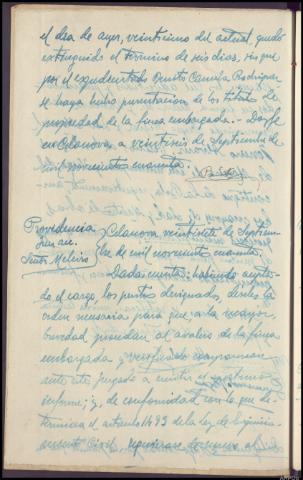 el dia de ayer, veintiuno del actual quedó
extinguido el termino de seis dias, sin que
por el expedientado Benito Rodriguez
se haya hecho presentación de los titulos de
propiedad de la finca embargada.- Doy fe
en Celanova, a veintiseis de Septiembre de
mil novecientos cuarenta.
Providencia
Juez
Señor Meleiro
Celanova, veintisiete de Septiem-
bre de mil novecientos cuarenta.
Dada cuenta; habiendo acepta-
do el cargo, los peritos designados, denles la
orden necesaria para que a la mayor
brevedad procedan al avaluo de la finca
embargada y comparezcan
ante este Juzgado a emitir el oportuno
informe; y, de conformidad con lo que de-
termina el articulo 1495 de la Ley de Enjuicia-
miento Civil, requierase de nuevo al